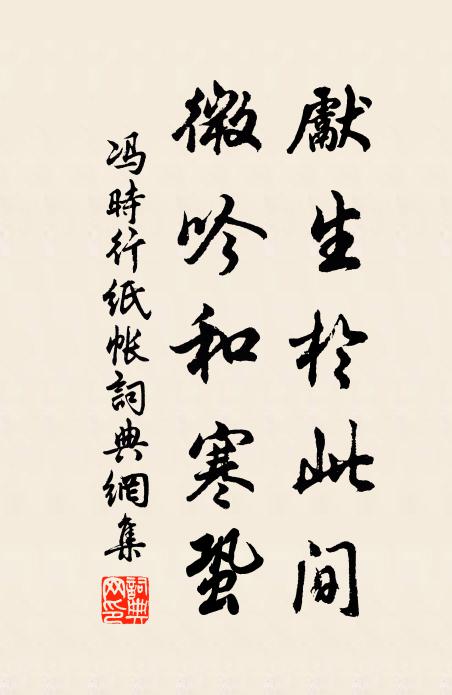 獻生於此間
微吟和寒蛩
冯時行紙帐詞典網集
詞典网印